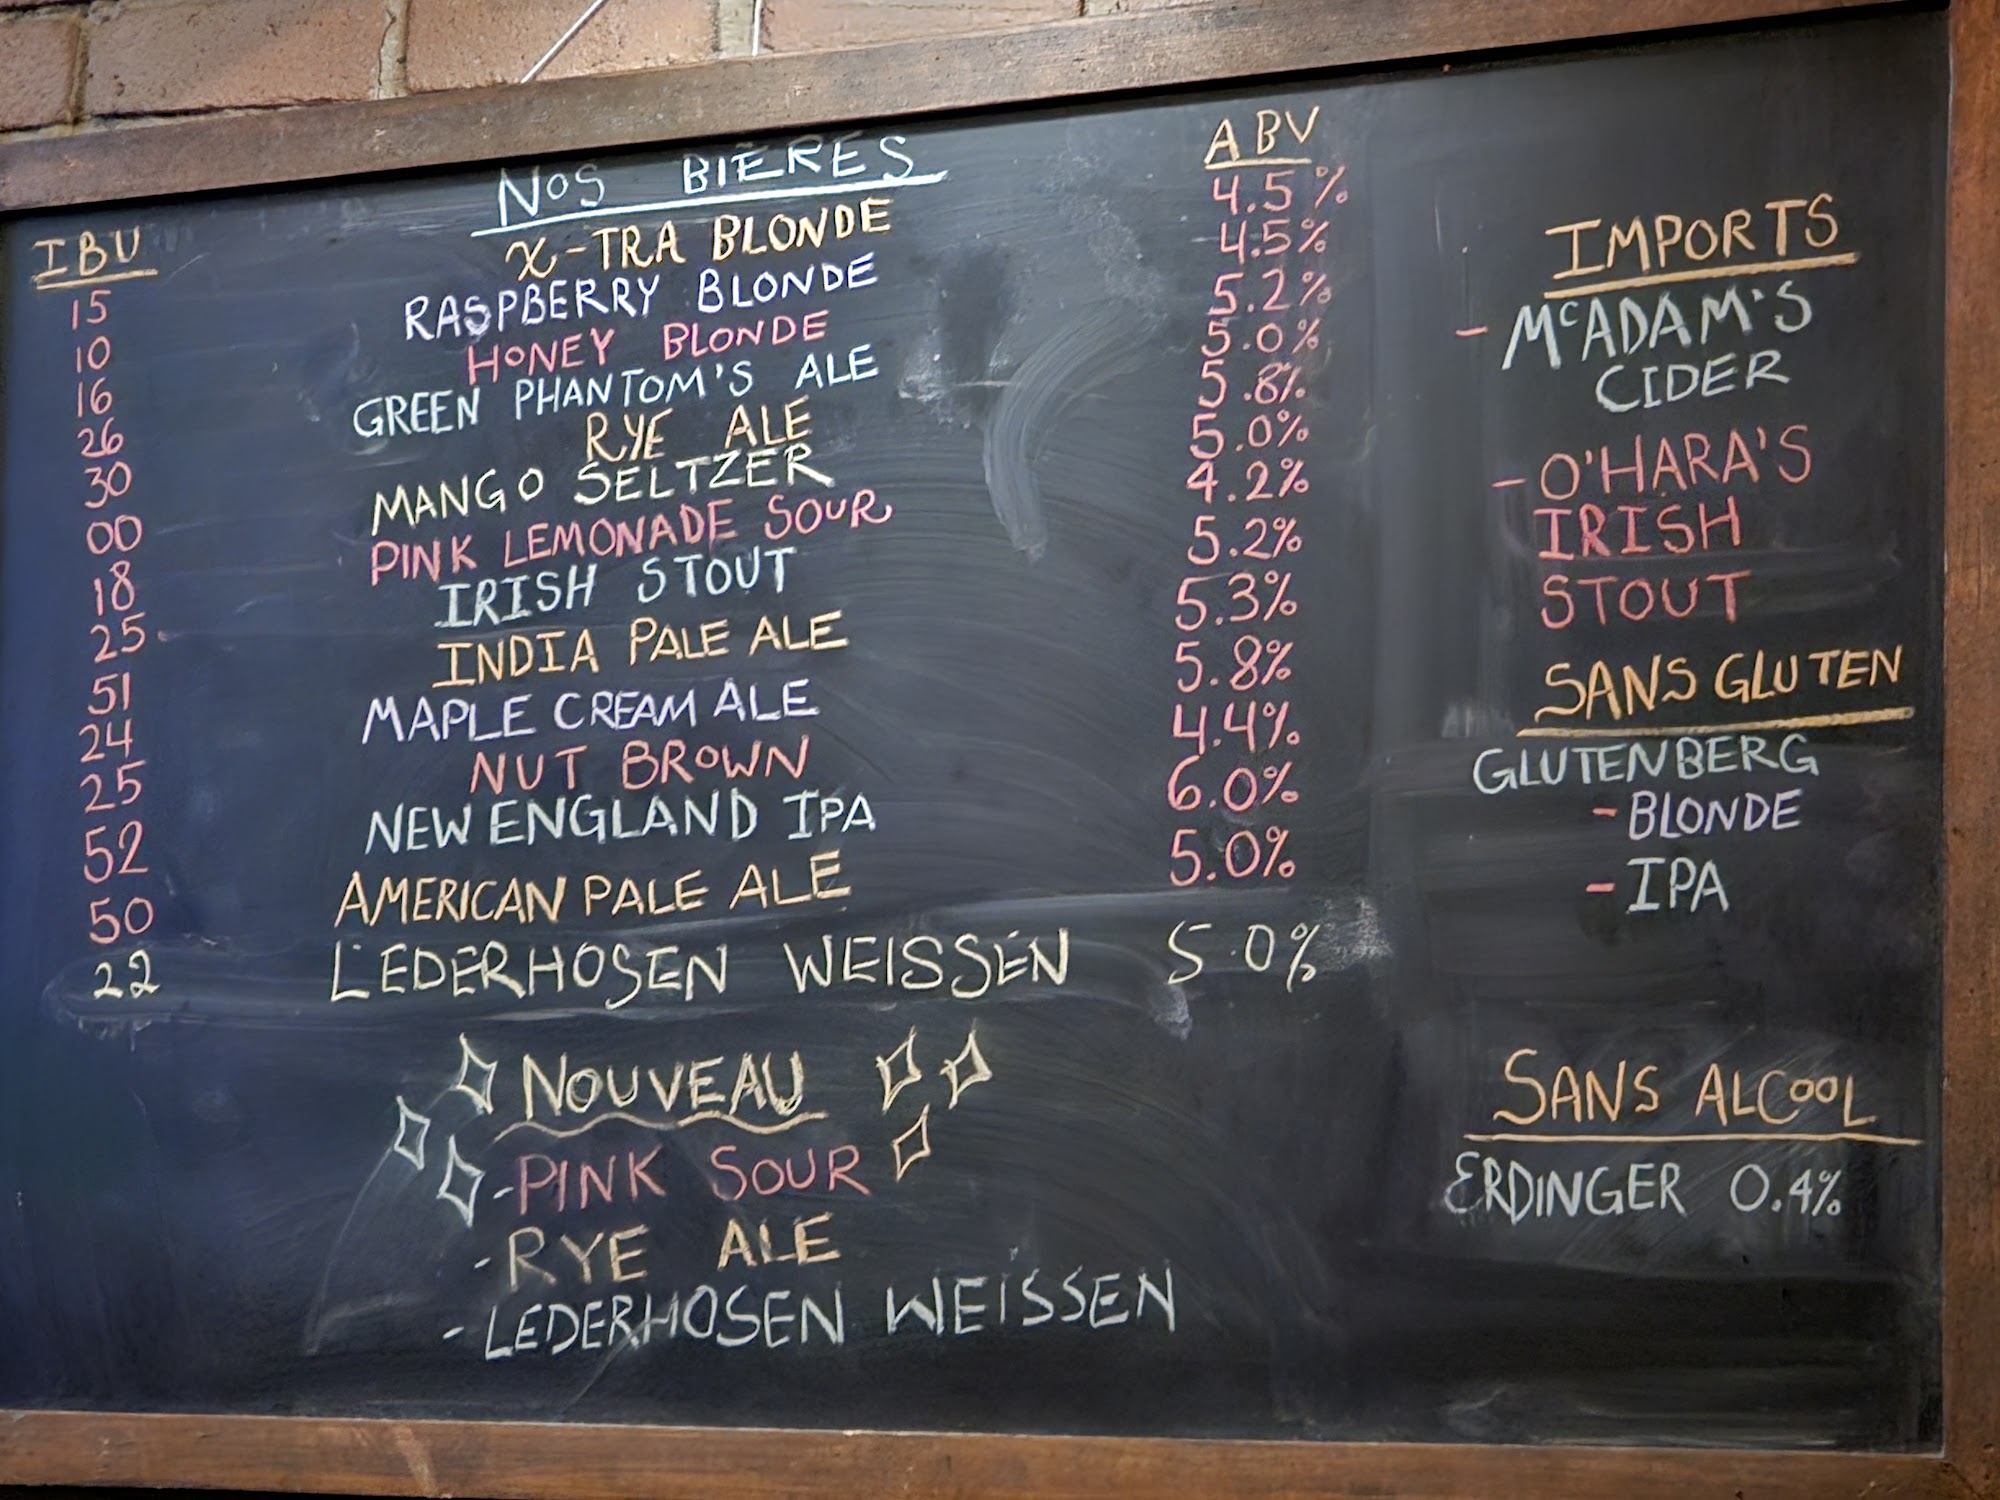 NOS BIÈRES
IBU ABV
15 X-TRA BLONDE 4.5%
10 RASPBERRY BLONDE 4.5%
16 HONEY BLONDE 5.2%
26 GREEN PHANTOM'S ALE 5.0%
30 RYE ALE 5.8%
00 MANGO SELTZER 5.0%
18 PINK LEMONADE SOUR 4.2%
25 IRISH STOUT 5.2%
51 INDIA PALE ALE 5.3%
24 MAPLE CREAM ALE 5.8%
25 NUT BROWN 4.4%
52 NEW ENGLAND IPA 6.0%
50 AMERICAN PALE ALE 5.0%
22 LEDERHOSEN WEISSEN 5.0%
NOUVEAU
-PINK SOUR
-RYE ALE
-LEDERHOSEN WEISSEN
IMPORTS
- McADAM'S
CIDER
- O'HARA'S
IRISH
STOUT
SANS GLUTEN
GLUTENBERG
- BLONDE
- IPA
SANS ALCOOL
ERDINGER 0.4%